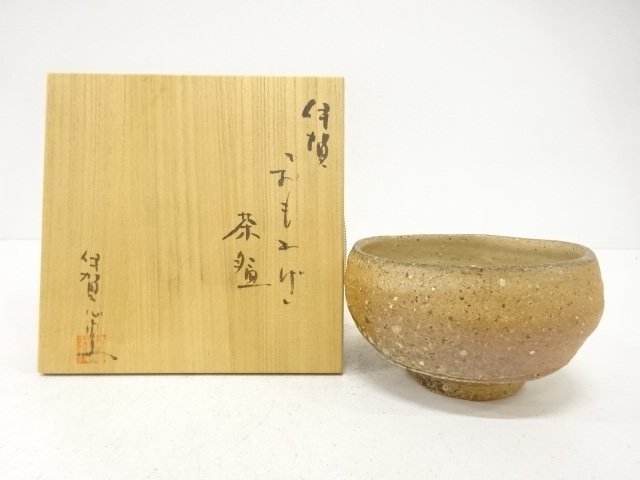 伊賀
「おもかげ」
茶盌
伊賀